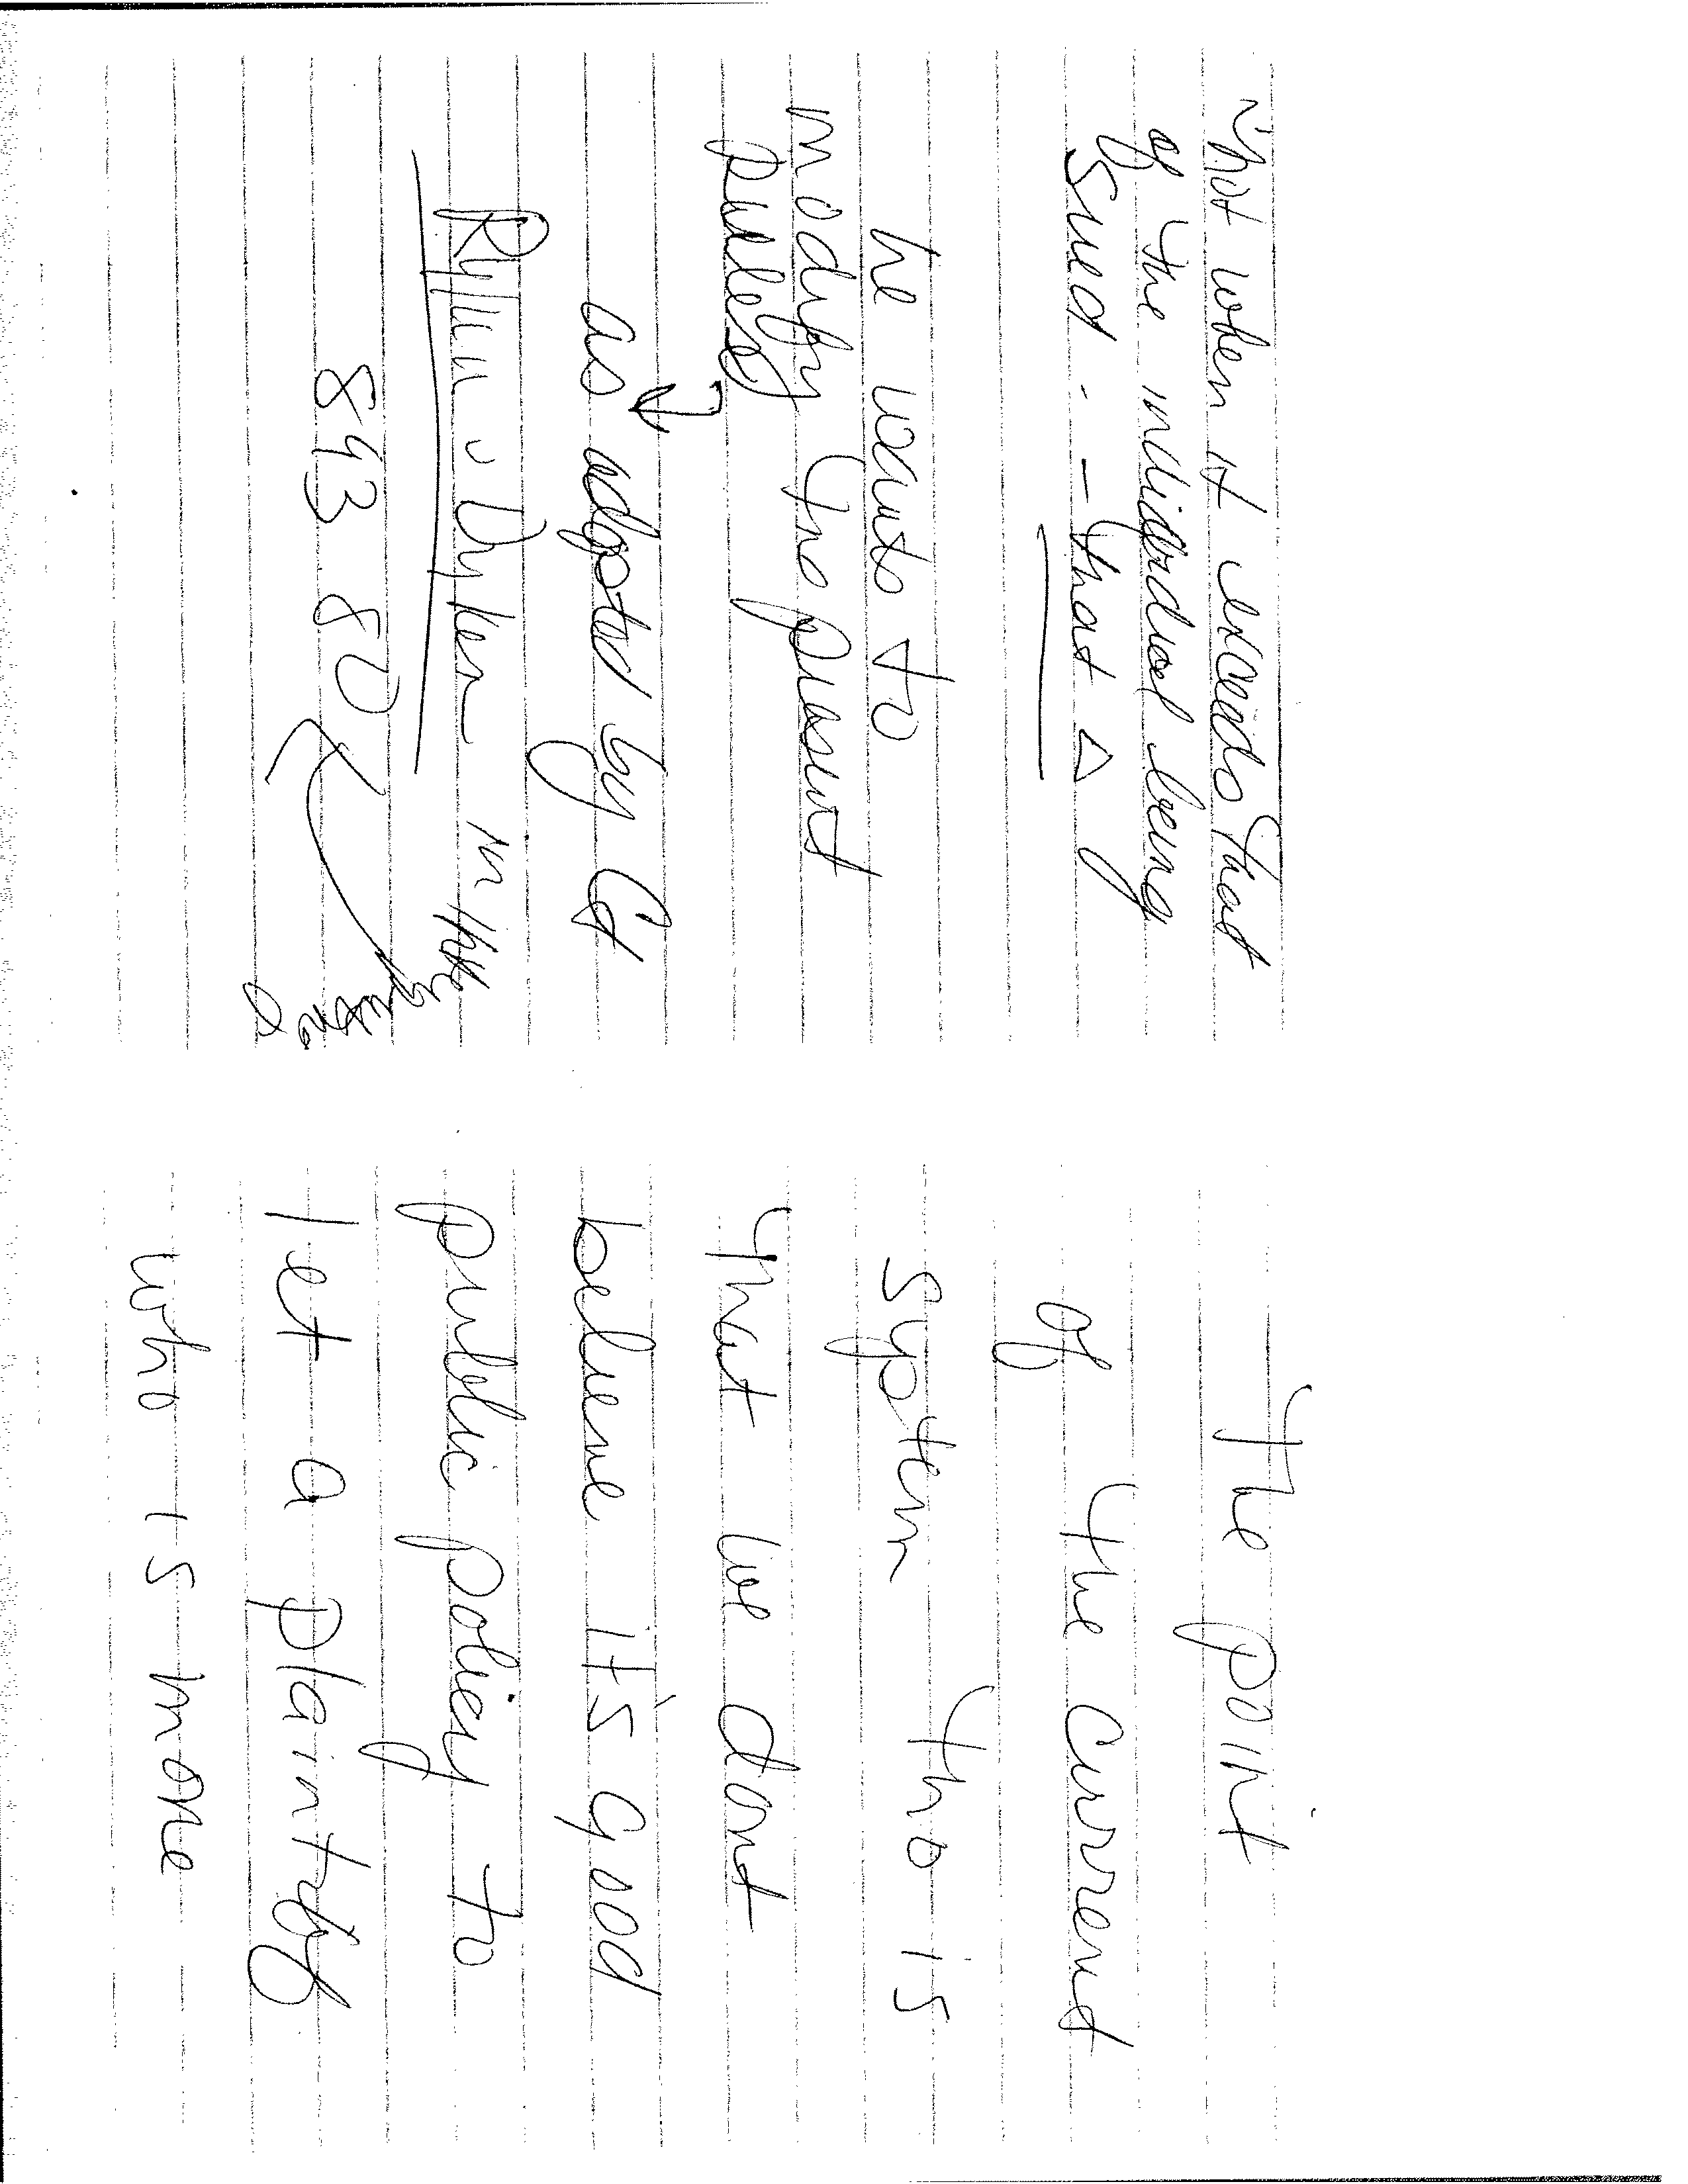 not when it exceeds that
of the individual being
sued - - that Δ
he wants to
modify the present
rules
as adopted by Ct
v Dyken in the
893.80
The point
of the current
system tho is
that we dont
believe it's good
public policy to
let a plaintiff
who is more